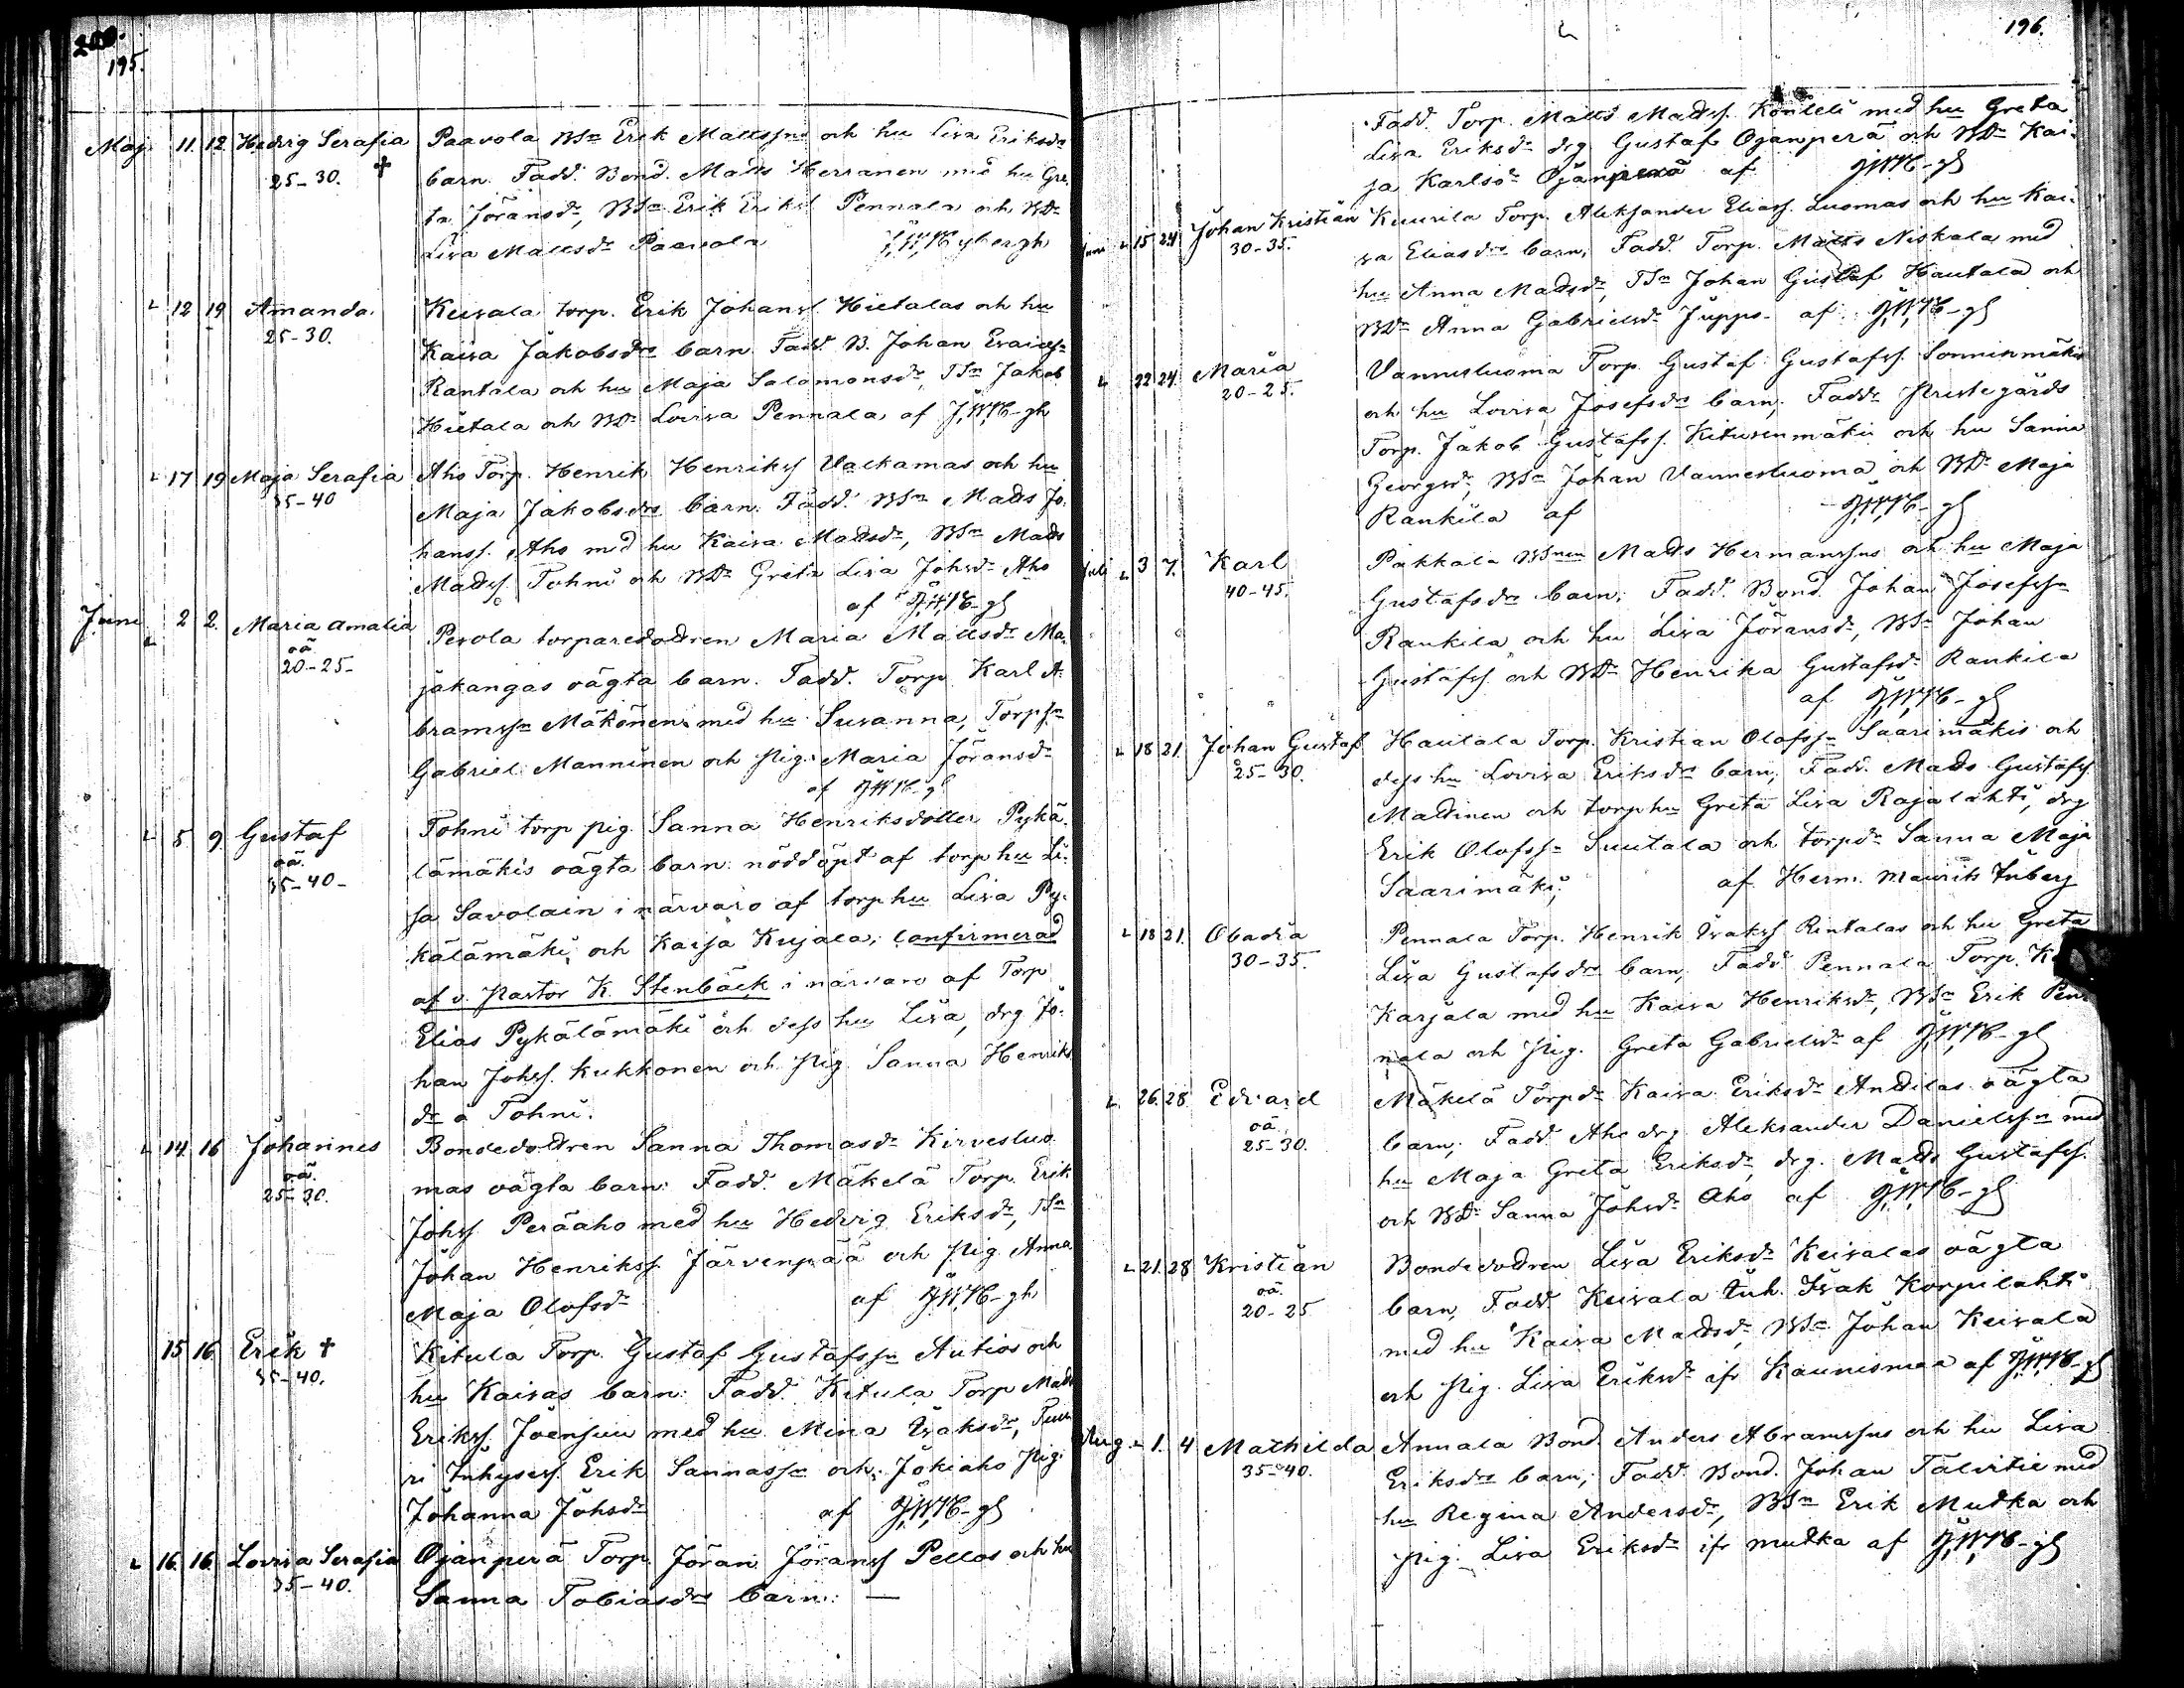 195.
Maj 11. 12. Hedvig Serafia Paavola BSn Erik Mattssns och hu Lisa Eriksdrs
25-30. † barn. Fadd. Bond. Matts Herranen med hu Gre-
ta Jöransdr, BSn Erik Erikss. Pennala och BDr
Lisa Mattsdr Paavola
12 19 Amanda. Keisala torp. Erik Johanss. Hietalas och hu
25-30. Kaisa Jakobsdrs barn. Fadd. B. Johan Esaiass
Rantala och hu Maja Salomonsdr, TSn Jakob
Hietala och BDr Lovisa Pennala, af J,W,N-gh
17 19 Maja Serafia Aho Torp. Henrik Henrikss Valkamas och hu
35-40 Maja Jakobsdrs barn. Fadd. BSn Matts Jo-
hanss. Aho med hu Kaisa Mattsdr, BSn Matts
Madss. Tohni och BDr Greta Lisa Johsdr Aho
af J,W,N-gh
Juni 2 2. Maria Amalia Perola torparedodren Maria Mattsdr Ma-
oä
20-25- jakangas oägta barn. Fadd. Torp. Karl A-
bramssn Mäkönen med hu Susanna, Torpsn
Gabriel Manninen och Pig. Maria Jöransdr
af JWN-g
5 9. Gustaf Tohni torp pig. Sanna Henriksdotter Pykä-
oä.
35-40- lämäkis oägta barn: nöddöpt af torp hu Li-
sa Savolain i närvaro af torp hu Lisa Py-
kälämäki och Kaisa Kujala; confirmerad
af v. Pastor K. Stenbäck i närvaro af Torp
Elias Pykälämäki och dess hu Lisa, drg Jo-
han Johss. Kukkonen och Pig Sanna Henriks
dr å Tohni.
14 16 Johannes Bondedodren Sanna Thomasdr Kirvesluo
oä.
25-30. mas oägta barn: Fadd. Mäkelä Torp. Erik
Johss Peräaho med hu Hedvig Eriksdr, TSn
Johan Henrikss. Järvenpää och Pig. Anna
Maja Olofsdr af J,W,N-gh
15 16. Erik † Kitula Torp. Gustaf Gustafssn Autios och
35-40. hu Kaisas barn: Fadd. Kitula Torp Matts
Erikss. Joensuu med hu Mina Isaksdr,
ri Inhysess. Erik Sannassn och Jokiaho Pig.
Johanna Johsdr af J,W,N-gh
16. 16. Lovisa Serafia Ojanperä Torp. Jöran Jöranss Pellos och hu
35-40. Sanna Tobiasdrs barn: —
196.
Fadd. Torp. Matts Madss. Konteli med hu Greta
Lisa Eriksdr drg Gustaf Ojanperä och BDr Kai-
sa Karlsdr Ojanperä af JWN-gh
Juni 15 24 Johan Kristian Kuurila Torp. Aleksander Eliass. Luomas och hu Kai-
30-35. sa Eliasdrs barn, Fadd. Torp. Matts Niskala med
hu Anna Madsdr, TSn Johan Gustaf Hautala och
BDr Anna Gabrielsdr Juppo- af J,W,N-gh
22 24. Maria Vannesluoma Torp. Gustaf Gustafss. Sonninmäkis
20-25. och hu Lovisa Josefsdrs barn; Fadd. Prestegårds
Torp. Jakob Gustafss. Kitusenmäki och hu Sanna
Georgsdr, BSn Johan Vannesluoma och BDr Maja
Rankila af J,W,N-gh
Juli 3 7. Karl Pakkala BSnen Matts Hermanssns och hu Maja
40-45. Gustafsdrs barn; Fadd. Bond. Johan Josefssn
Rankila och hu Lisa Jöransdr, BSn Johan
Gustafss och BDr Henrika Gustafsdr Rankila
af J,W,N-gh
18 21. Johan Gustaf Hautala Torp. Kristian Olofssn Saarimäkis och
25-30. dess hu Lovisa Eriksdrs barn; Fadd. Matts Gustafss
Maltinen och torp hu Greta Lisa Rajalahti, drg
Erik Olofssn Luutala och torpdr Sanna Maja
Saarimäki; af Herm. Maurits Inberg
18 21. Obadia Pennala Torp. Henrik Isakss Rintalas och hu Greta
30-35. Lisa Gustafsdrs barn, Fadd Pennala Torp.
Karjala med hu Kaisa Henriksdr, BSn Erik Pen-
nala och Pig. Greta Gabrielsdr af J,W,N-gh
26. 28 Edvard Mäkelä Torpdr Kaisa Eriksdr Anttilas oägta
oä.
25-30. barn; Fadd. Aho drg Aleksander Danielssn med
hu Maja Greta Eriksdr, drg. Matts Gustafss.
och BDr Sanna Johsdr Aho af J,W,N-gh
21. 28 Kristian Bondedodren Lisa Eriksdr Keisalas oägta
oä.
20-25 barn, Fadd. Keisala Inh. Isak Korpilahti
med hu Kaisa Mattsdr, BSn Johan Keisala
och Pig. Lisa Eriksdr ifr Kaunismaa af J,W,N-gh
Aug. 1. 4 Mathilda Annala Bond. Anders Abramssns och hu Lisa
35-40. Eriksdrs barn; Fadd. Bond. Johan Talvitie med
hu Regina Andersdr, BSn Erik Mutka och
Pig. Lisa Eriksdr ifr Mutka af J,W,N-gh